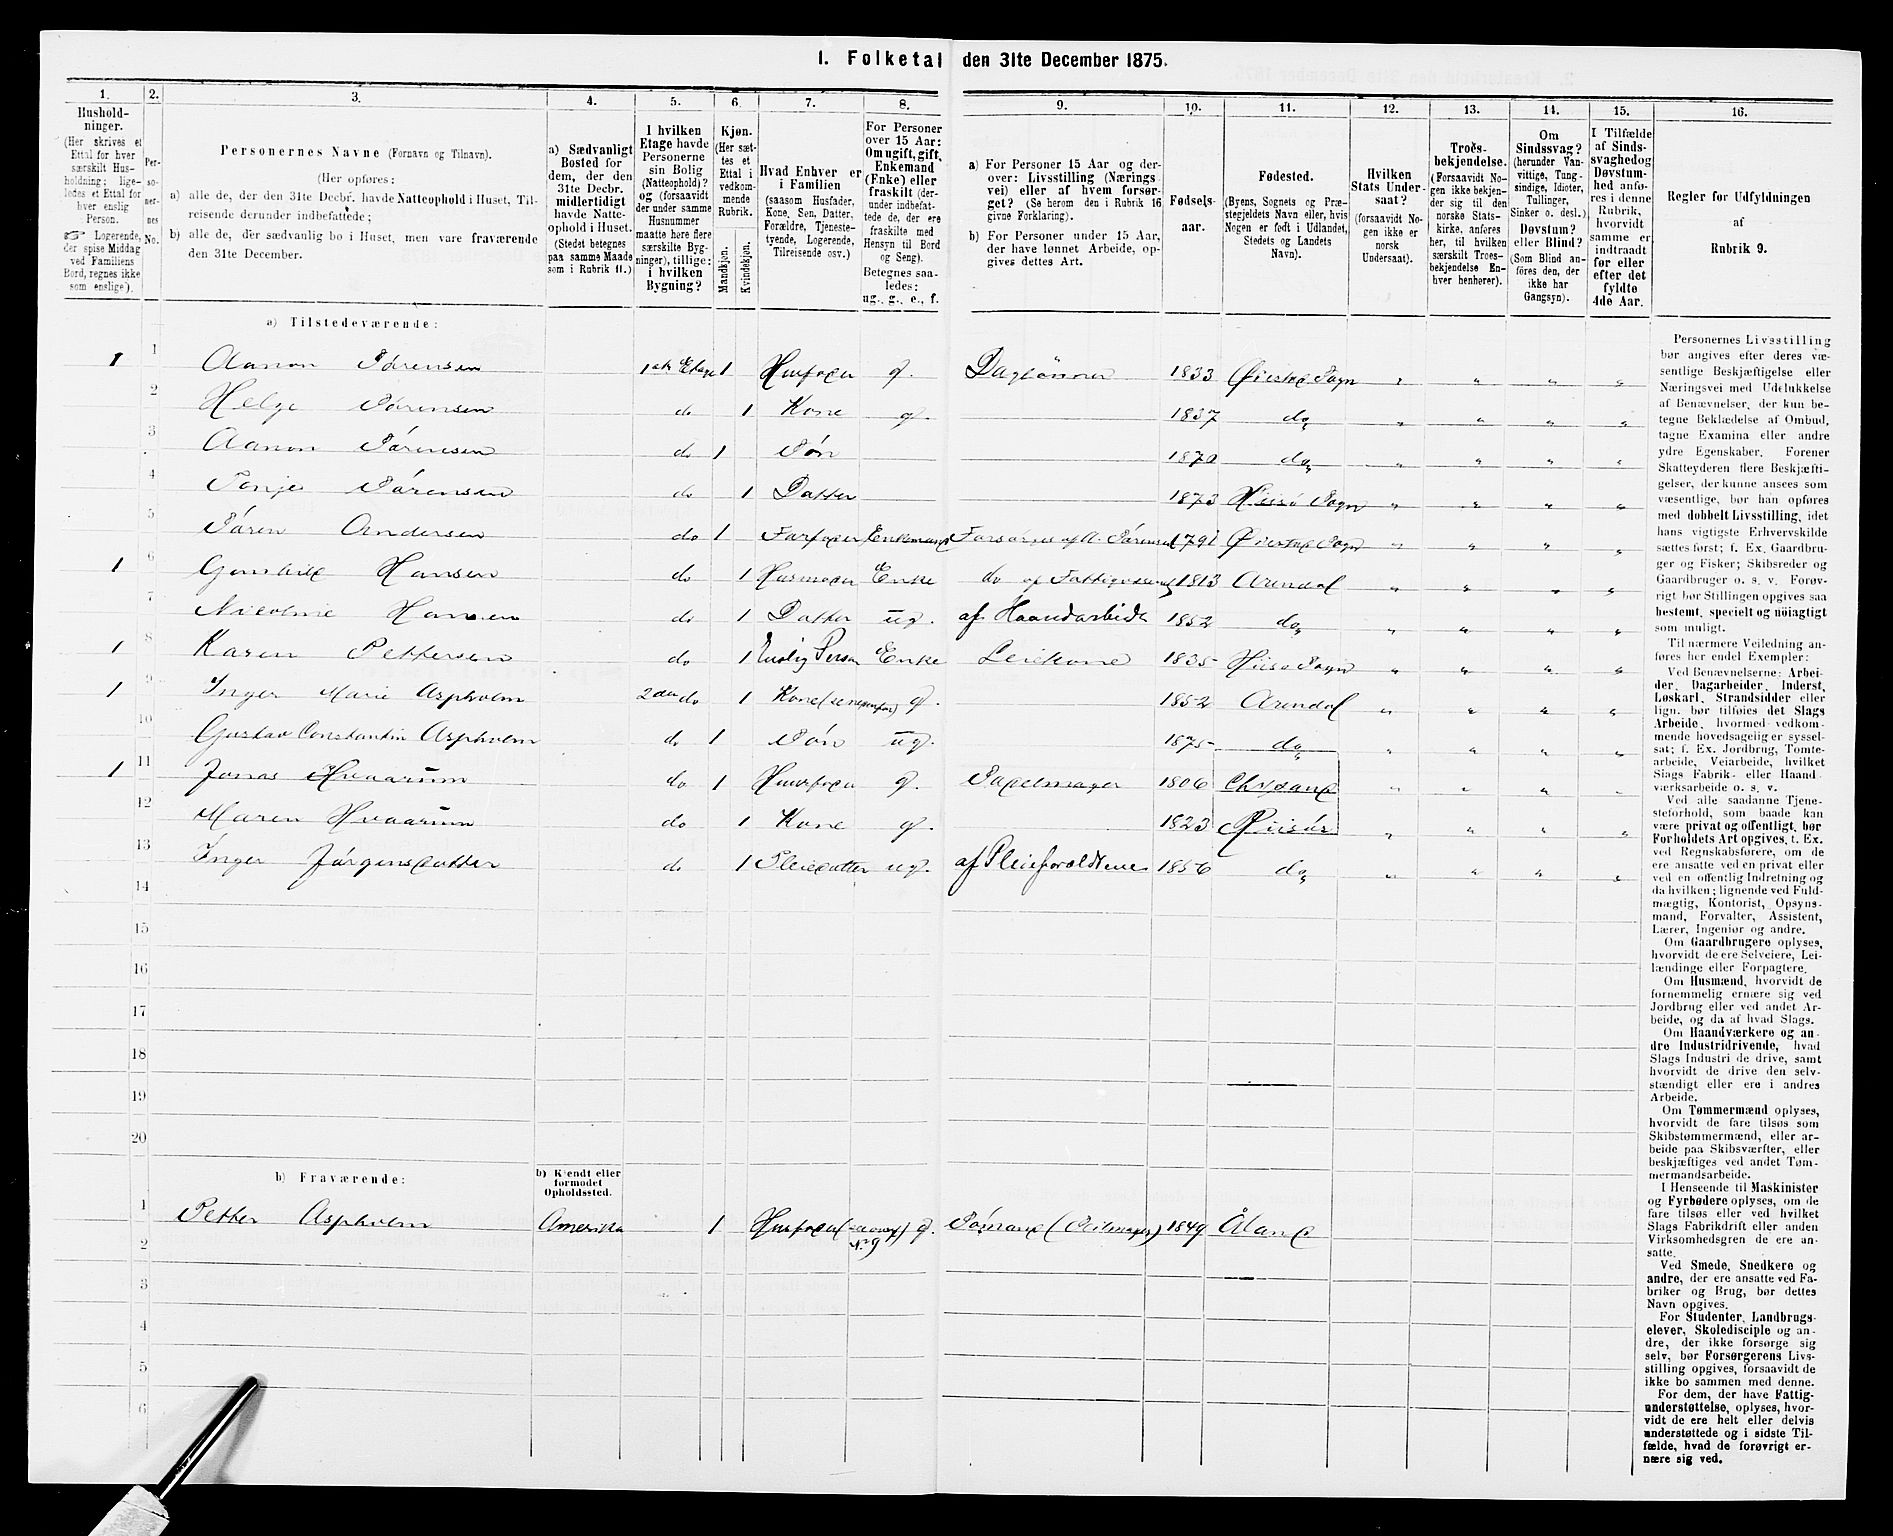 1. Folketal den 31te December 1875.
1. 2. 3. 4. 5. 6. 7. 8. 9. 10. 11. 12. 13. 14. 15. 16.
Hushold-
ninger.
(Her skrives et
Ettal for hver
særskilt Hus-
holdning; lige-
ledes et Ettal for
hver enslig
Person.
☞ Logerende,
der spise Middag
ved Familiens
Bord, regnes ikke
som enslige).
Per-
so-
ner-
nes
No.
Personernes Navne (Fornavn og Tilnavn).
(Her opføres:
a) alle de, der den 31te Decbr. havde Natteophold i Huset, Til-
reisende derunder indbefattede;
b) alle de, der sædvanlig bo i Huset, men vare fraværende
den 31te December.
a) Sædvanligt
Bosted for
dem, der den
31te Decbr.
midlertidigt
havde Natte-
ophold i Huset.
(Stedet betegnes
paa samme Maade
som i Rubrik 11.)
I hvilken
Etage havde
Personerne
sin Bolig
(Natteophold)?
og (forsaavidt
der under samme
Husnummer
maatte høre flere
særskilte Byg-
ninger), tillige:
i hvilken
Bygning?
Kjøn.
(Her sæt-
tes et
Ettal i
vedkom-
mende
Rubrik.
Mandkjøn.
Kvindekjøn.
Hvad Enhver er
i Familien
(saasom Husfader,
Kone, Søn, Datter,
Forældre, Tjeneste-
tyende, Logerende,
Tilreisende osv.)
For Personer
over 15 Aar:
Om ugift, gift,
Enkemand
(Enke) eller
fraskilt (der-
under indbefat-
tede de, der ere
fraskilte med
Hensyn til Bord
og Seng).
Betegnes saa-
ledes:
ug., g., e., f.
a) For Personer 15 Aar og der-
over: Livsstilling (Nærings
vei) eller af hvem forsør-
get? (Se herom den i Rubrik 16
givne Forklaring).
b) For Personer under 15 Aar,
der have lønnet Arbeide, op-
gives dettes Art.
Fødsels-
aar.
Fødested.
(Byens, Sognets og Præ-
stegjeldets Navn eller, hvis
Nogen er født i Udlandet,
Stedets og Landets
Navn).
Hvilken
Stats Under-
saat?
(forsaavidt No-
gen ikke er
norsk
Undersaat).
Troes-
bekjendelse.
(Forsaavidt No-
gen ikke bekjen-
der sig til den
norske Stats-
kirke, anføres
her, til hvilken
særskilt Troes-
bekjendelse En-
hver henhører).
Om
Sindssvag?
(herunder Van-
vittige, Tung-
sindige, Idioter,
Tullinger,
Sinker o. desl.)
Døvstum?
eller Blind?
(Som Blind an-
føres den, der
ikke har
Gangsyn).
I Tilfælde
af Sinds-
svaghed og
Døvstum-
hed anfø-
res i denne
Rubrik,
hvorvidt
samme er
indtraadt
før eller
efter det
fyldte
4de Aar.
Regler for Udfyldningen
af
Rubrik 9.
a) Tilstedeværende:
1 1 Aanon Sørensen 1ste Etage 1 Husfader g. Daglønner 1833 Øiestad Sogn " " " "
2 Helge Sørensen do 1 Kone g. 1837 do " " " "
3 Aanon Sørensen do 1 Søn 1870 do " " " "
4 Tonje Sørensen do 1 Datter 1873 Hisø Sogn " " " "
5 Søren Andersen do 1 Farfader Enkemand Forsørges af A. Sørensen 1791 Øiestad Sogn " " " "
1 6 Gunhild Hansen do 1 Husmoder Enke do af Fattigvæsenet 1813 Arendal " " " "
7 Nicoline Hansen do 1 Datter ug. af Haandarbide 1852 do " " " "
1 8 Karen Pettersen do 1 Enslig Person Enke Leiekone 1835 Hisø Sogn " " " "
1 9 Inger Marie Aspholm 2den do 1 Kone g. 1852 Arendal " " " "
10 Gustav Constantin Aspholm do 1 Søn ug. 1875 do " " " "
1 11 Jonas Hvaarum do 1 Huusfader g. Sadelmager 1806 Chrsand " " " "
12 Maren Hvaarum do 1 Kone g. 1823 Riisør " " " "
13 Inger Jørgensdatter do 1 Pleiedatter ug. af Pleieforældrene 1856 do " " " "
14
15
16
17
18
19
20
b) Fraværende:
b) Kjendt eller
formodet
Opholdssted.
1 Petter Aspholm Amerika 1 Husfader No 9 g. Sømand (Seilmager) 1849 Åland
2
3
4
5
6
Personernes Livsstilling
bør angives efter deres væ-
sentlige Beskjæftigelse eller
Næringsvei med Udelukkelse
af Benævnelser, der kun be-
tegne Beklædelse af Ombud,
tagne Examina eller andre
ydre Egenskaber. Forener
Skatteyderen flere Beskjæfti-
gelser, der kunne ansees som
væsentlige, bør han opføres
med dobbelt Livsstilling, idet
hans vigtigste Erhvervskilde
sættes først; f. Ex. Gaardbru-
ger og Fisker; Skibsreder og
Gaardbruger o. s. v. Forøv-
rigt bør Stillingen opgives saa
bestemt, specielt og nöiagtigt
som muligt.
Til nærmere Veiledning an-
føres her endel Exempler:
Ved Benævnelserne: Arbei-
der, Dagarbeider, Inderst,
Løskarl, Strandsidder eller
lign. bør tilføies det Slags
Arbeide, hvormed vedkom-
mende hovedsagelig er syssel-
sat; f. Ex. Jordbrug, Tomte-
arbeide, Veiarbeide, hvilket
Slags Fabrik- eller Haand
værksarbeide o. s. v.
Ved alle saadanne Tjene-
steforhold, som baade kan
være privat og offentligt, bør
Forholdets Art opgives, t. Ex.
ved Regnskabsførere, om de
ere ansatte ved en privat eller
ved en offentlig Indretning og
da hvilken; lignende ved Fuld-
mægtig, Kontorist, Opsyns-
mand, Forvalter, Assistent,
Lærer, Ingeniør og andre.
Om Gaardbrugere oplyses,
hvorvidt de ere Selveiere, Lei-
lændinge eller Forpagtere.
Om Husmænd, hvorvidt de
fornemmelig ernære sig ved
Jordbrug eller ved andet Ar-
beide, og da af hvad Slags.
Om Haandværkere og an-
dre Industridrivende, hvad
Slags Industri de drive, samt
hvorvidt de drive den selv-
stændigt eller ere i andres
Arbeide.
Om Tømmermænd oplyses,
hvorvidt de fare tilsøs som
Skibstømmermænd, eller ar-
beide paa Skibsværfter, eller
beskjæftiges ved andet Tøm-
mermandsarbeide.
I Henseende til Maskinister
og Fyrbødere oplyses, om de
fare tilsøs eller ved hvilket
Slags Fabrikdrift eller anden
Virksomhedsgren de ere an-
satte.
Ved Smede, Snedkere og
andre, der ere ansatte ved Fa-
briker og Brug, bør dettes
Navn opgives.
For Studenter, Landbrugs-
elever, Skoledisciple og an-
dre, der ikke forsørge sig
selv, bør Forsørgerens Livs-
stilling opgives, forsaavidt de
ikke bo sammen med denne.
For dem, der have Fattig-
understøttelse, oplyses, hvor-
vidt de ere helt eller delvis
understøttede og i sidste Til-
fælde, hvad de forøvrigt er-
nære sig ved.